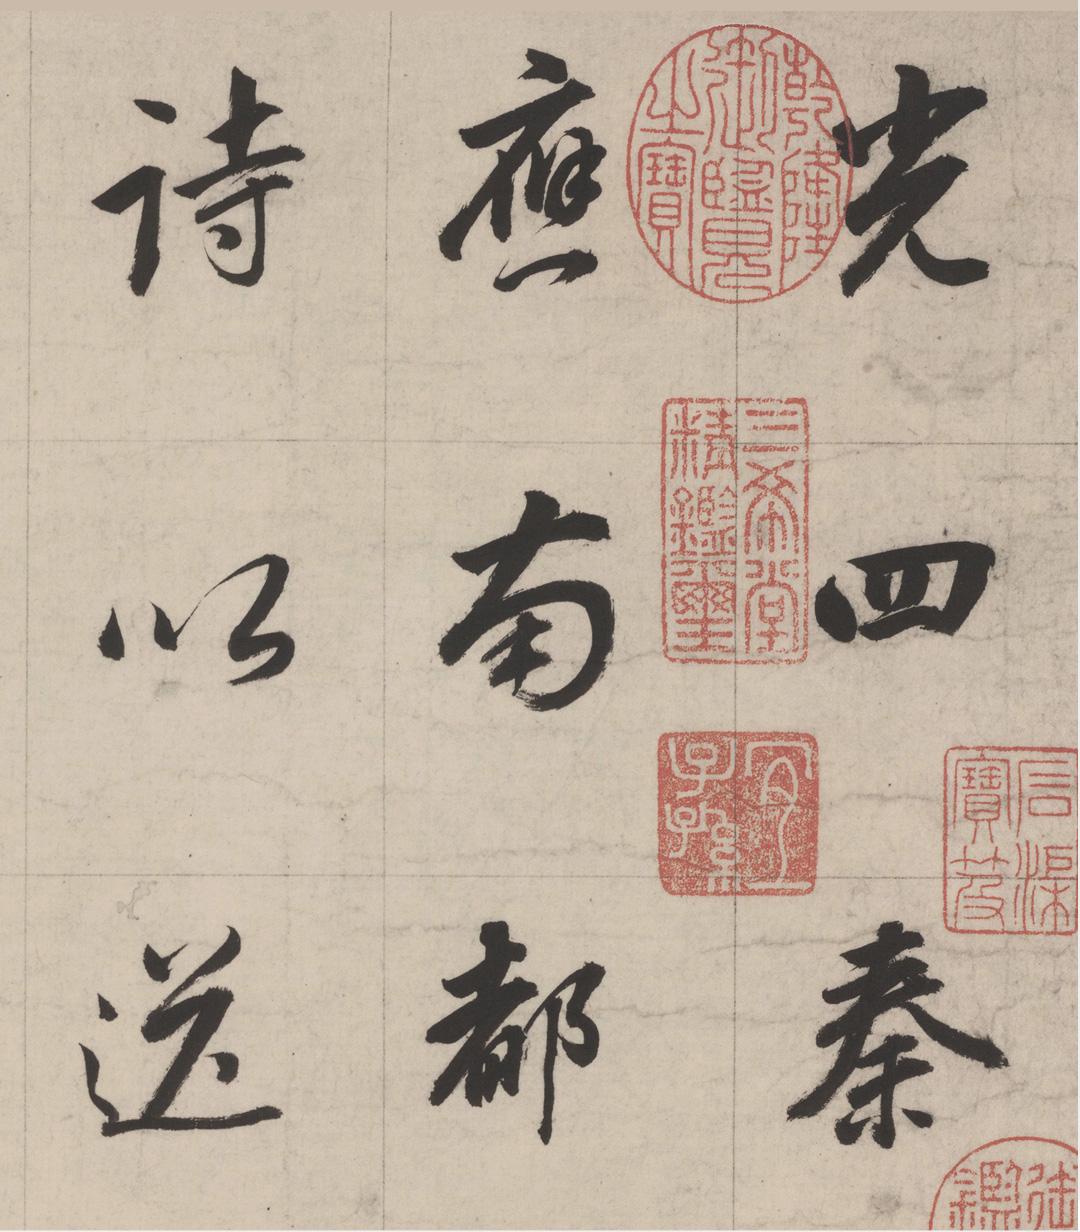 光四秦
應南都
詩以送
乾隆御覽之寶
三希堂精鑑璽
宜子孫
石渠寶笈